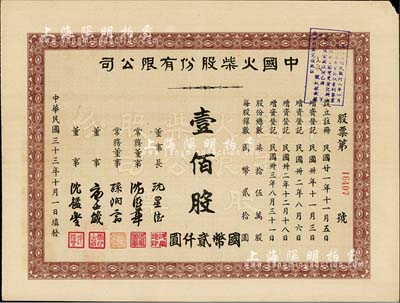 中國火柴股份有限公司
股票第 16407 號
設立註冊 民國廿一年十一月五日
增資登記 民國卅年十一月三日
增資登記 民國卅二年八月六日
增資登記 民國卅二年十二月十八日
增資登記 民國卅三年八月三十一日
股份總數 柒拾伍萬股
每股銀數 國幣貳拾圓
壹佰股
國幣貳仟圓
董事長
常務董事
常務董事
董事
董事
中華民國三十三年十月一日填發
上海陽明拍賣